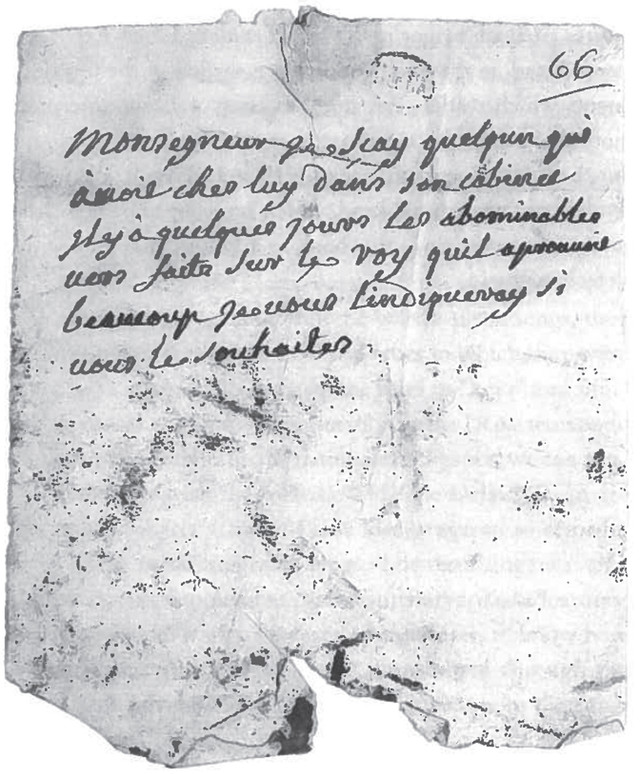 66
Monsegneur je scay quelqun qui
àvoit ches luy dans son cabinet
il y à quelques jours les abominables
vers faits sur le roy quil aprouvoit
beaucoup je vous lindiqueray si
vous le souhaites